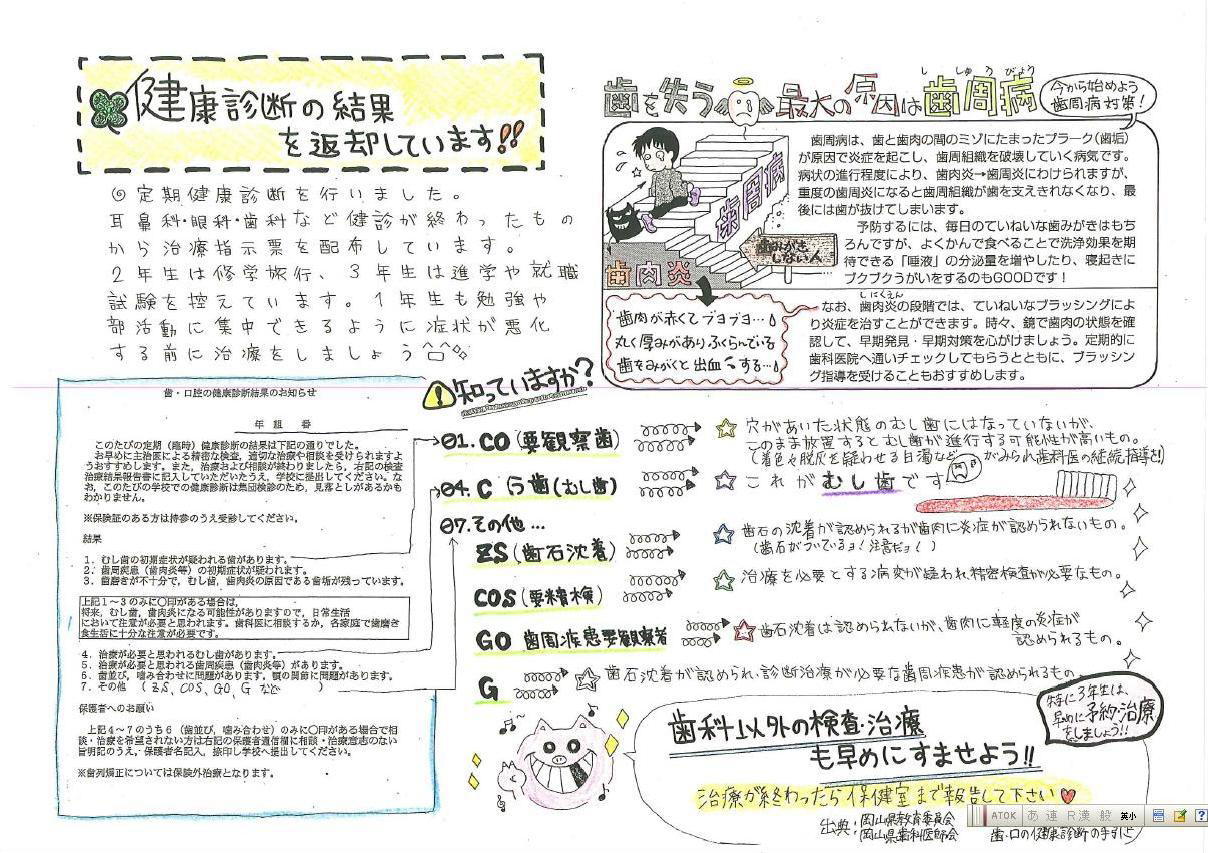 健康診断の結果
を返却しています!!
◎定期健康診断を行いました。
耳鼻科・眼科・歯科など健診が終わったもの
から治療指示票を配布しています。
2年生は修学旅行、3年生は進学や就職
試験を控えています。1年生も勉強や
部活動に集中できるように症状が悪化
する前に治療をしましょう
歯を失う最大の原因は歯周病
ししゅうびょう
今から始めよう
歯周病対策!
歯周病
歯みがき
しない人
歯肉炎
歯周病は、歯と歯肉の間のミゾにたまったプラーク(歯垢)
が原因で炎症を起こし、歯周組織を破壊していく病気です。
病状の進行程度により、歯肉炎→歯周炎にわけられますが、
重度の歯周炎になると歯周組織が歯を支えきれなくなり、最
後には歯が抜けてしまいます。
予防するには、毎日のていねいな歯みがきはもち
ろんですが、よくかんで食べることで洗浄効果を期
待できる「唾液」の分泌量を増やしたり、寝起きに
ブクブクうがいをするのもGOODです!
歯肉が赤くてブヨブヨ…
丸く厚みがありふくらんでいる
歯をみがくと出血する…
しにくえん
なお、歯肉炎の段階では、ていねいなブラッシングによ
り炎症を治すことができます。時々、鏡で歯肉の状態を確
認して、早期発見・早期対策を心がけましょう。定期的に
歯科医院へ通いチェックしてもらうとともに、ブラッシン
グ指導を受けることもおすすめします。
歯・口腔の健康診断結果のお知らせ
年 組 番
このたびの定期(臨時)健康診断の結果は下記の通りでした。
お早めに主治医による精密な検査、適切な治療や相談を受けられますよ
うおすすめします。また、治療および相談が終わりましたら、右記の検査
治療結果報告書に記入していただいたうえ、学校に提出してください。な
お、このたびの学校での健康診断は集団検診のため、見落としがあるかも
わかりません。
※保険証のある方は持参のうえ受診してください。
結果
1.むし歯の初期症状が疑われる歯があります。
2.歯周疾患(歯肉炎等)の初期症状が疑われます。
3.歯磨きが不十分で、むし歯、歯肉炎の原因である歯垢が残っています。
上記1~3のみに〇印がある場合は、
将来、むし歯、歯肉炎になる可能性がありますので、日常生活
において注意が必要と思われます。歯科医に相談するか、各家庭で歯磨き
食生活に十分な注意が必要です。
4.治療が必要と思われるむし歯があります。
5.治療が必要と思われる歯周疾患(歯肉炎等)があります。
6.歯並び、噛み合わせに問題があります。顎の関節に問題があります。
7.その他 (ZS, COS, GO, G など )
保護者へのお願い
上記4~7のうち6(歯並び、噛み合わせ)のみに〇印がある場合で相
談・治療を希望されない方は右記の保護者通信欄に相談・治療意志のない
旨明記のうえ、保護者名記入、捺印し学校へ提出してください。
※歯列矯正については保険外治療となります。
知っていますか?
01. CO(要観察歯)
穴があいた状態のむし歯にはなっていないが、
このまま放置するとむし歯が進行する可能性が高いもの。
(着色や脱灰を疑わせる白濁などがみられ歯科医の継続指導を!)
04. C う歯(むし歯)
これがむし歯です
07. その他…
ZS(歯石沈着)
歯石の沈着が認められるが歯肉に炎症が認められないもの。
(歯石がついているョ!注意だョ!)
COS(要精検)
治療を必要とする病変が疑われ精密検査が必要なもの。
GO 歯周疾患要観察者
歯石沈着は認められないが、歯肉に軽度の炎症が
認められるもの。
G
歯石沈着が認められ、診断治療が必要な歯周疾患が認められるもの。
特に3年生は、
早めに予約・治療
をしましょう!!
歯科以外の検査・治療
も早めにすませよう!!
治療が終わったら保健室まで報告して下さい
出典:岡山県教育委員会
岡山県歯科医師会 歯・口の健康診断の手引より
ATOK あ 連 R漢 般 英小